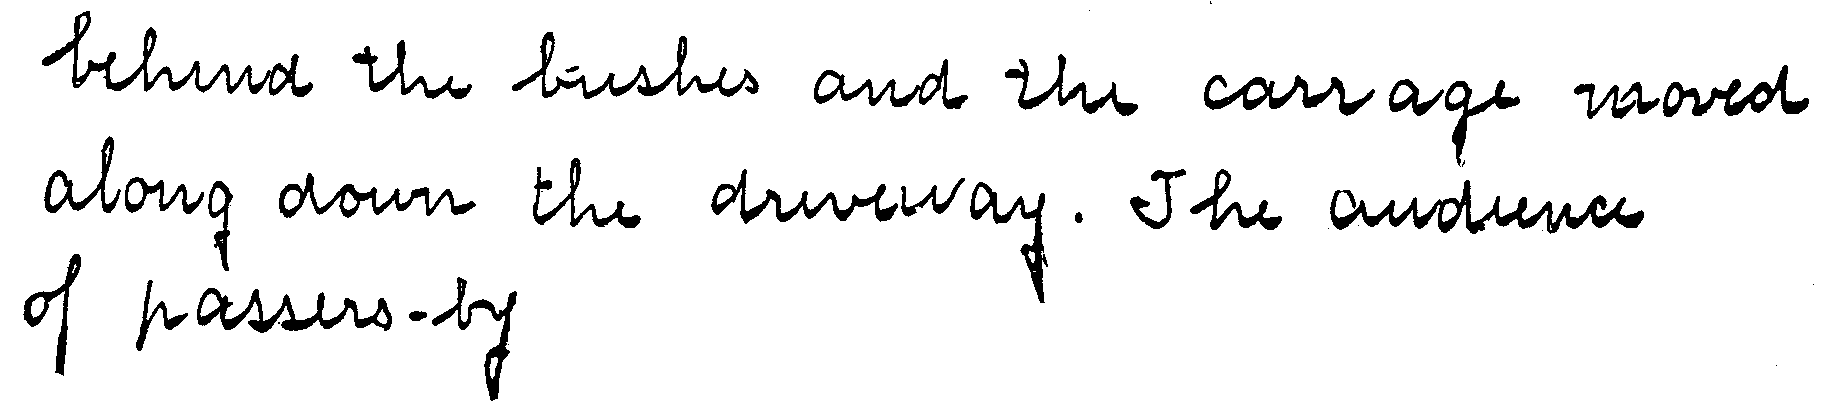 behind the bushes and the carriage moved
along down the driveway. The audience
of passers-by